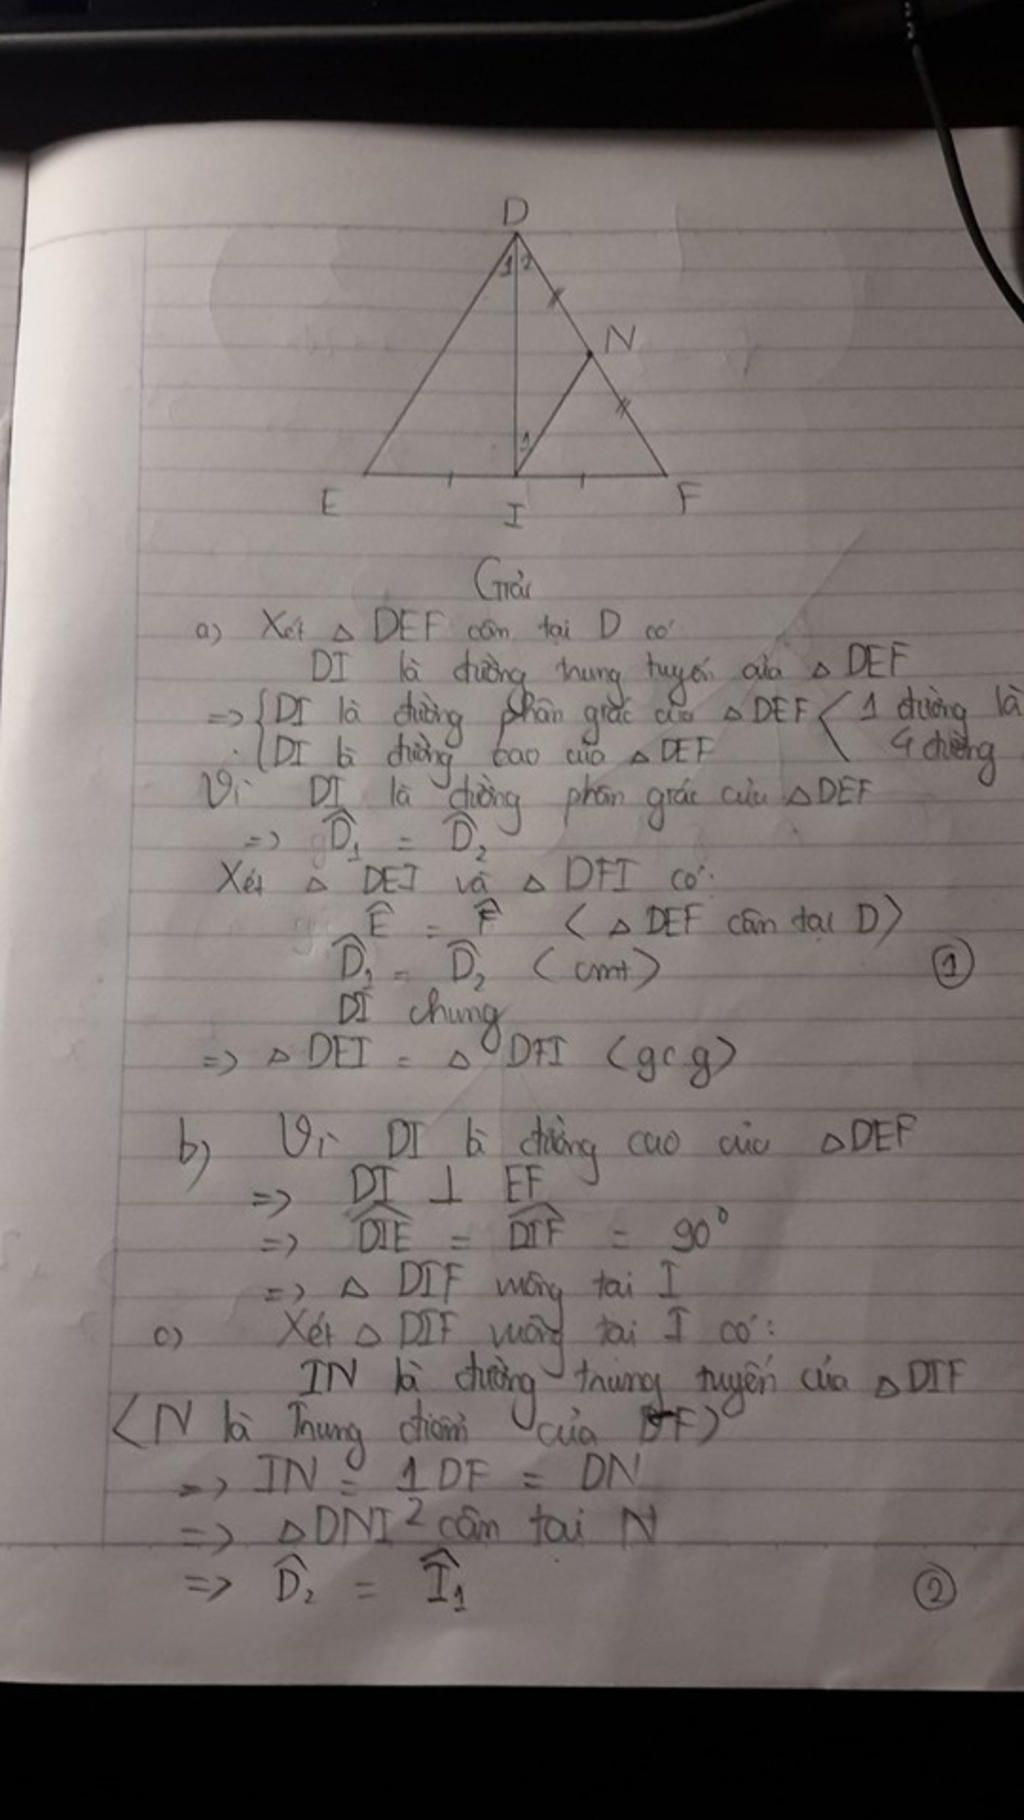 D
1 2
N
1
E
I
F
Giải
a) Xét △ DEF cân tại D có
DI là đường trung tuyến của △ DEF
=> { DI là đường phân giác của △ DEF < 1 đường là
DI là đường cao của △ DEF 4 đường
Vì DI là đường phân giác của △ DEF
=> D̂₁ = D̂₂
Xét △ DEI và △ DFI có:
Ê = F̂ < △ DEF cân tại D >
D̂₁ = D̂₂ < cmt > ①
DI chung
=> △ DEI = △ DFI < gcg >
b) Vì DI là đường cao của △ DEF
=> DI ⊥ EF
=> DIE = DIF = 90⁰
=> △ DIF vuông tại I
c) Xét △ DIF vuông tại I có:
IN là đường trung tuyến của △ DIF
< N là Trung điểm của DF >
=> IN = 1/2 DF = DN
=> △ DNI cân tại N
=> D̂₂ = Î₁ ②